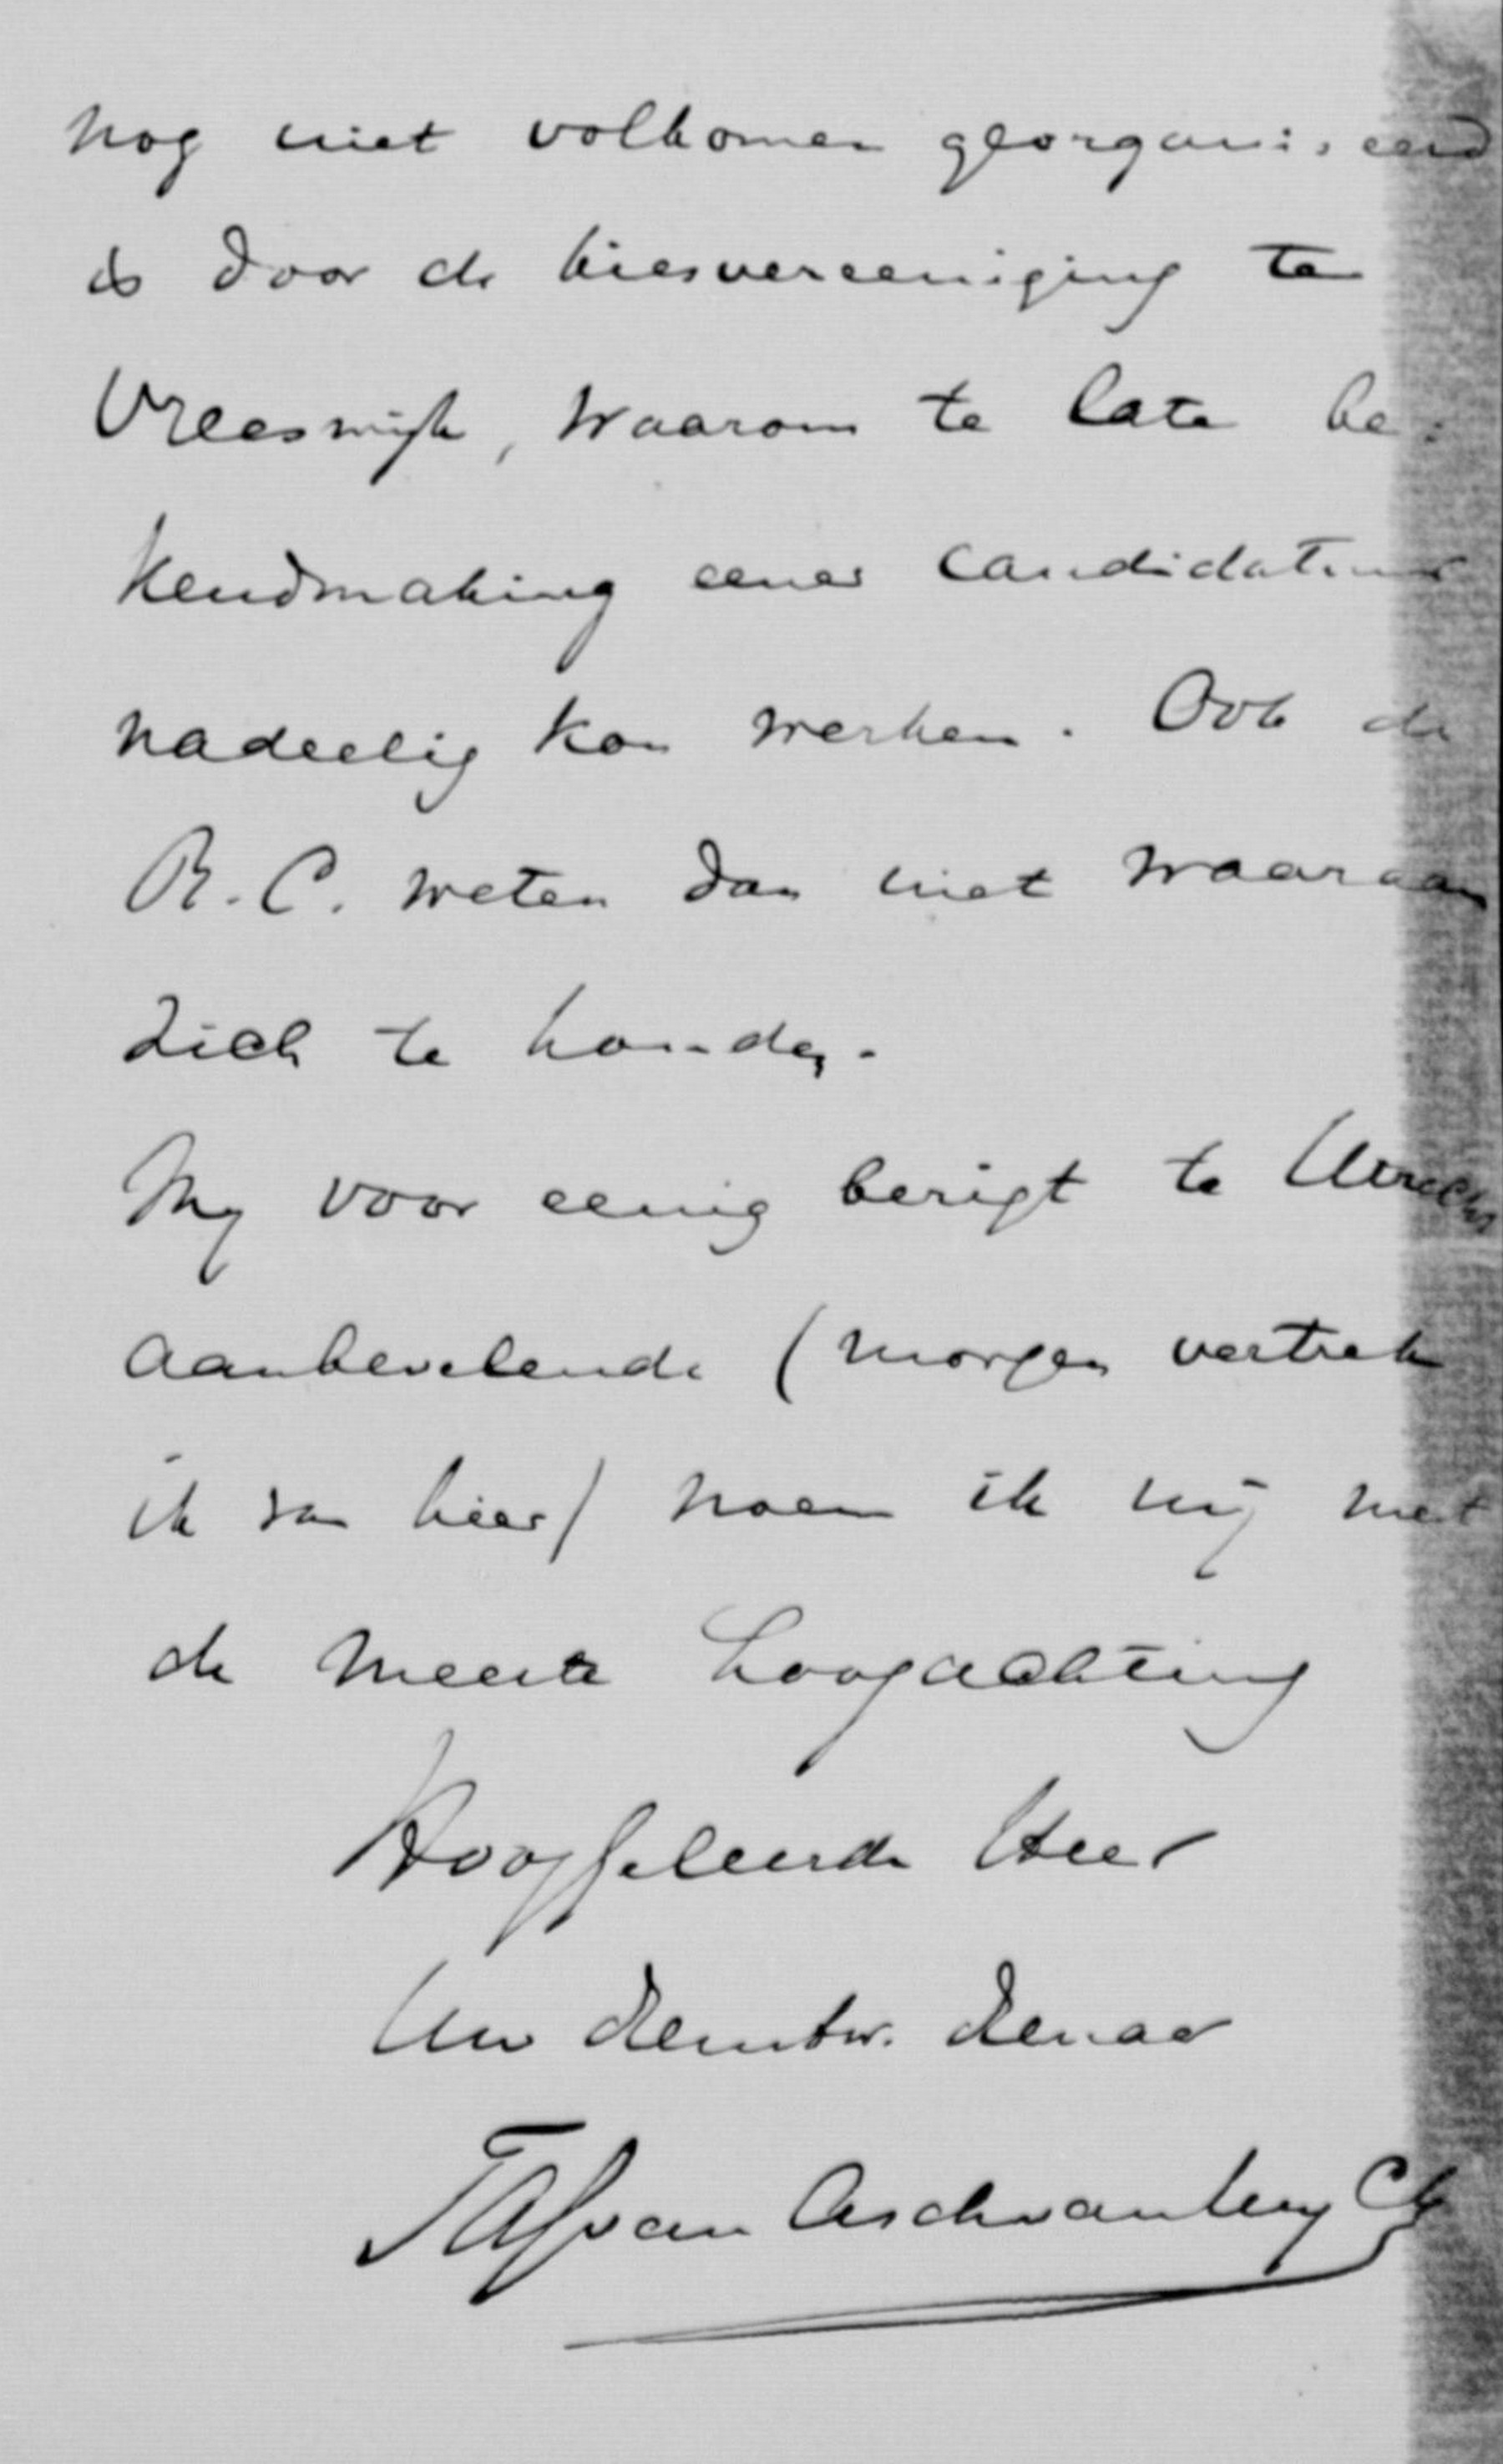 nog niet volkomen georganiseerd
is door de kiesvereeniging te
Vreeswijk, waarom te late be-
kendmaking eener candidatuur
nadeelig kon werken. Ook de
R.C. weten dan niet waaraan
zich te houden.
My voor eenig berigt te Utrecht
aanbevelende (morgen vertrek
ik van hier) noem ik mij met
de meeste hoogachting
Hooggeleerde Heer
Uw dienstw. dienaar
van Asch van Wijck